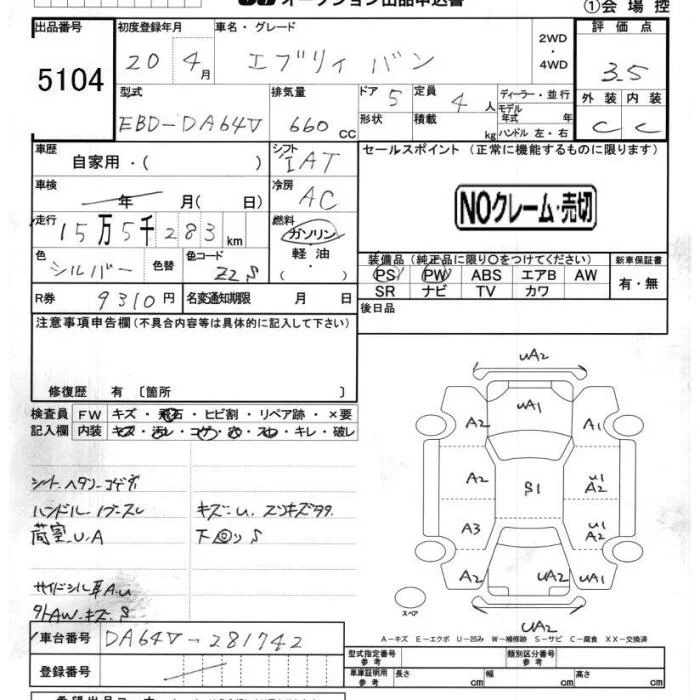 オークション出品申込書
①会場控
出品番号 初度登録年月 車名・グレード 2WD・4WD 評価点
5104 20 4月 エブリィ バン 3.5
型式 排気量 ドア 5 定員 4人 ディーラー・並行 外装 内装
EBD-DA64V 660cc 形状 積載 kg モデル年式 年 C C
ハンドル 左・右
車歴 自家用・( ) シフト IAT セールスポイント (正常に機能するものに限ります)
車検 年 月(日) 冷房 AC NOクレーム・売切
走行 15万5千283km 燃料 ガソリン 軽油 (・)
色 シルバー 色替 色コード Z2S
装備品 (純正品に限り○をつけてください) 新車保証書
PS PW ABS エアB AW 有・無
SR ナビ TV カワ
R券 9310円 名変通知期限 月 日 後日品
注意事項申告欄 (不具合内容等は具体的に記入して下さい)
修復歴 有 〔箇所 〕
検査員 FW キズ・飛石・ヒビ割・リペア跡・×要
記入欄 内装 キズ・汚レ・コゲ・穴・スレ・キレ・破レ
シート ヘタリ コゲ穴
ハンドル ノブ スレ キズ:u.
荷室 U.A 下回り S
サイドシル A.u
AW キズ S
UA2
UA1
A2 A1
A2 S1 U1 A2
A3 U1 A2
A2 UA2 UA1
スペア
UA2
A-キズ E-エクボ U-凹み W-補修跡 S-サビ C-腐食 XX-交換済
車台番号 DA64V-281742 型式指定番号 参考 類別区分番号 参考
登録番号 車庫証明用 参考 長さ cm 幅 cm 高さ cm